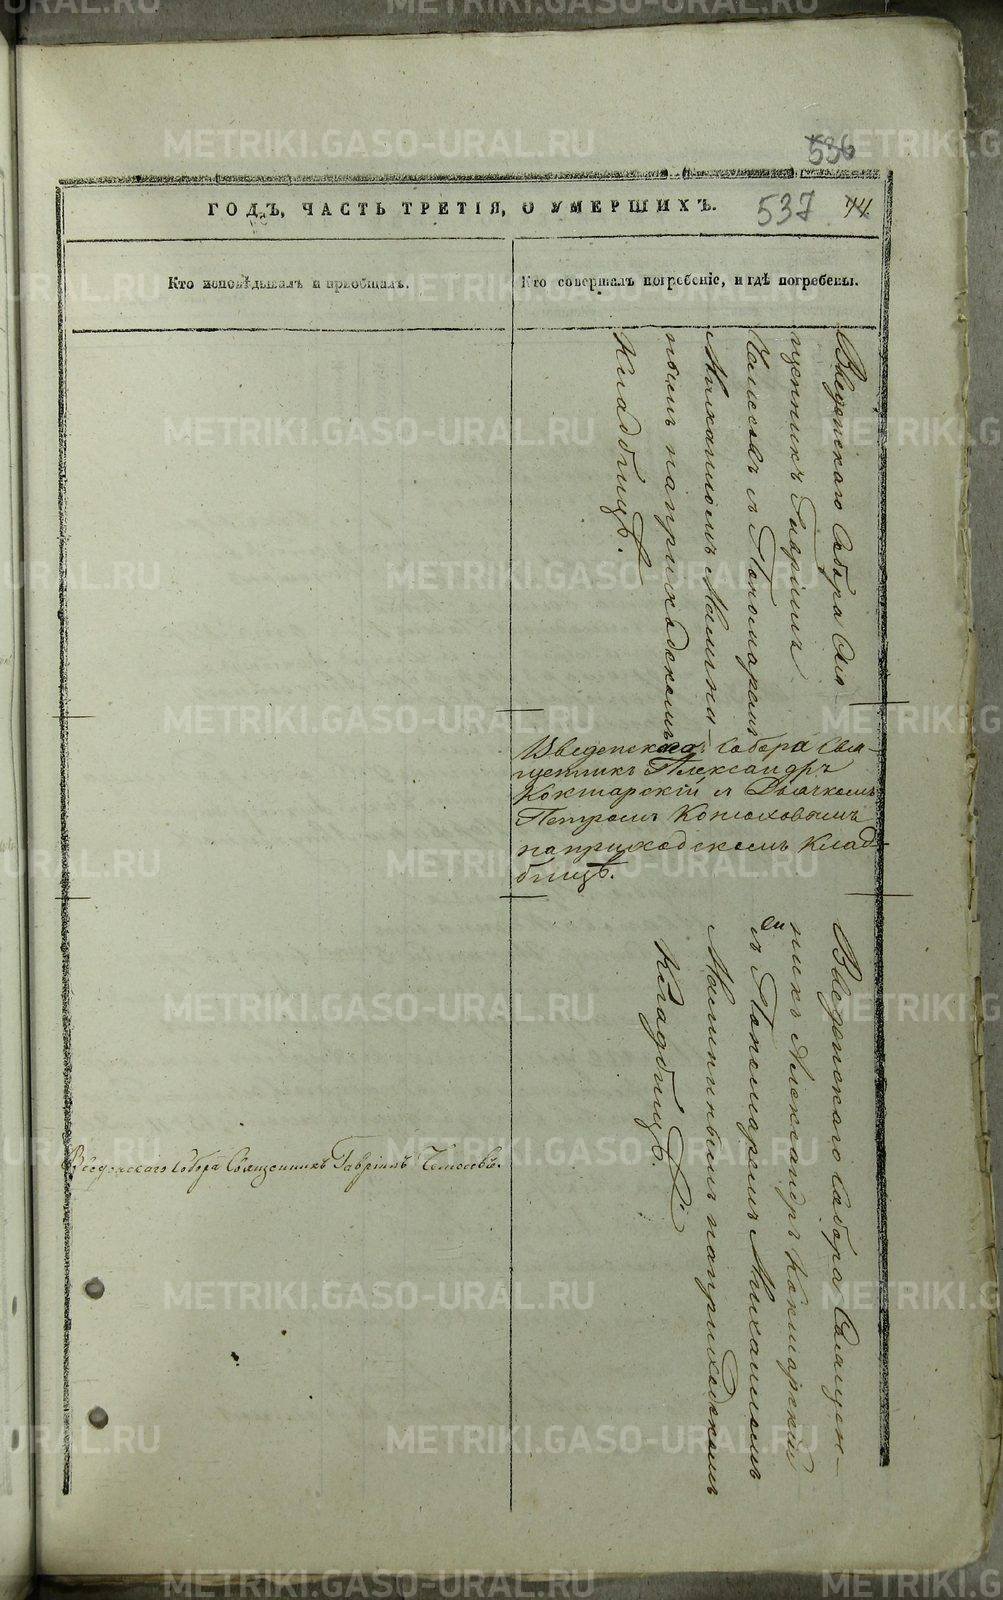 536
537 44
ГОДЪ, ЧАСТЬ ТРЕТІЯ, О УМЕРШИХЪ.
Кто исповѣдывалъ и пріобщалъ.
Кто совершалъ погребеніе, и гдѣ погребены.
Введенскаго Собора Свя-
щенникъ Гавріилъ
съ Пономаремъ
Михаиломъ
на приходскомъ
Кладбищѣ.
Введенскаго Собора Свя-
щенникъ Александръ
Кокшарскій съ Дьячкомъ
Петромъ Конюховымъ
на приходскомъ Клад-
бищѣ.
Введенскаго Собора Священ-
никъ Александръ Кокшарскій
съ Пономаремъ Михаиломъ
на приходскомъ
Кладбищѣ.
Введенскаго Собора Священникъ Гавріилъ
METRIKI.GASO-URAL.RU